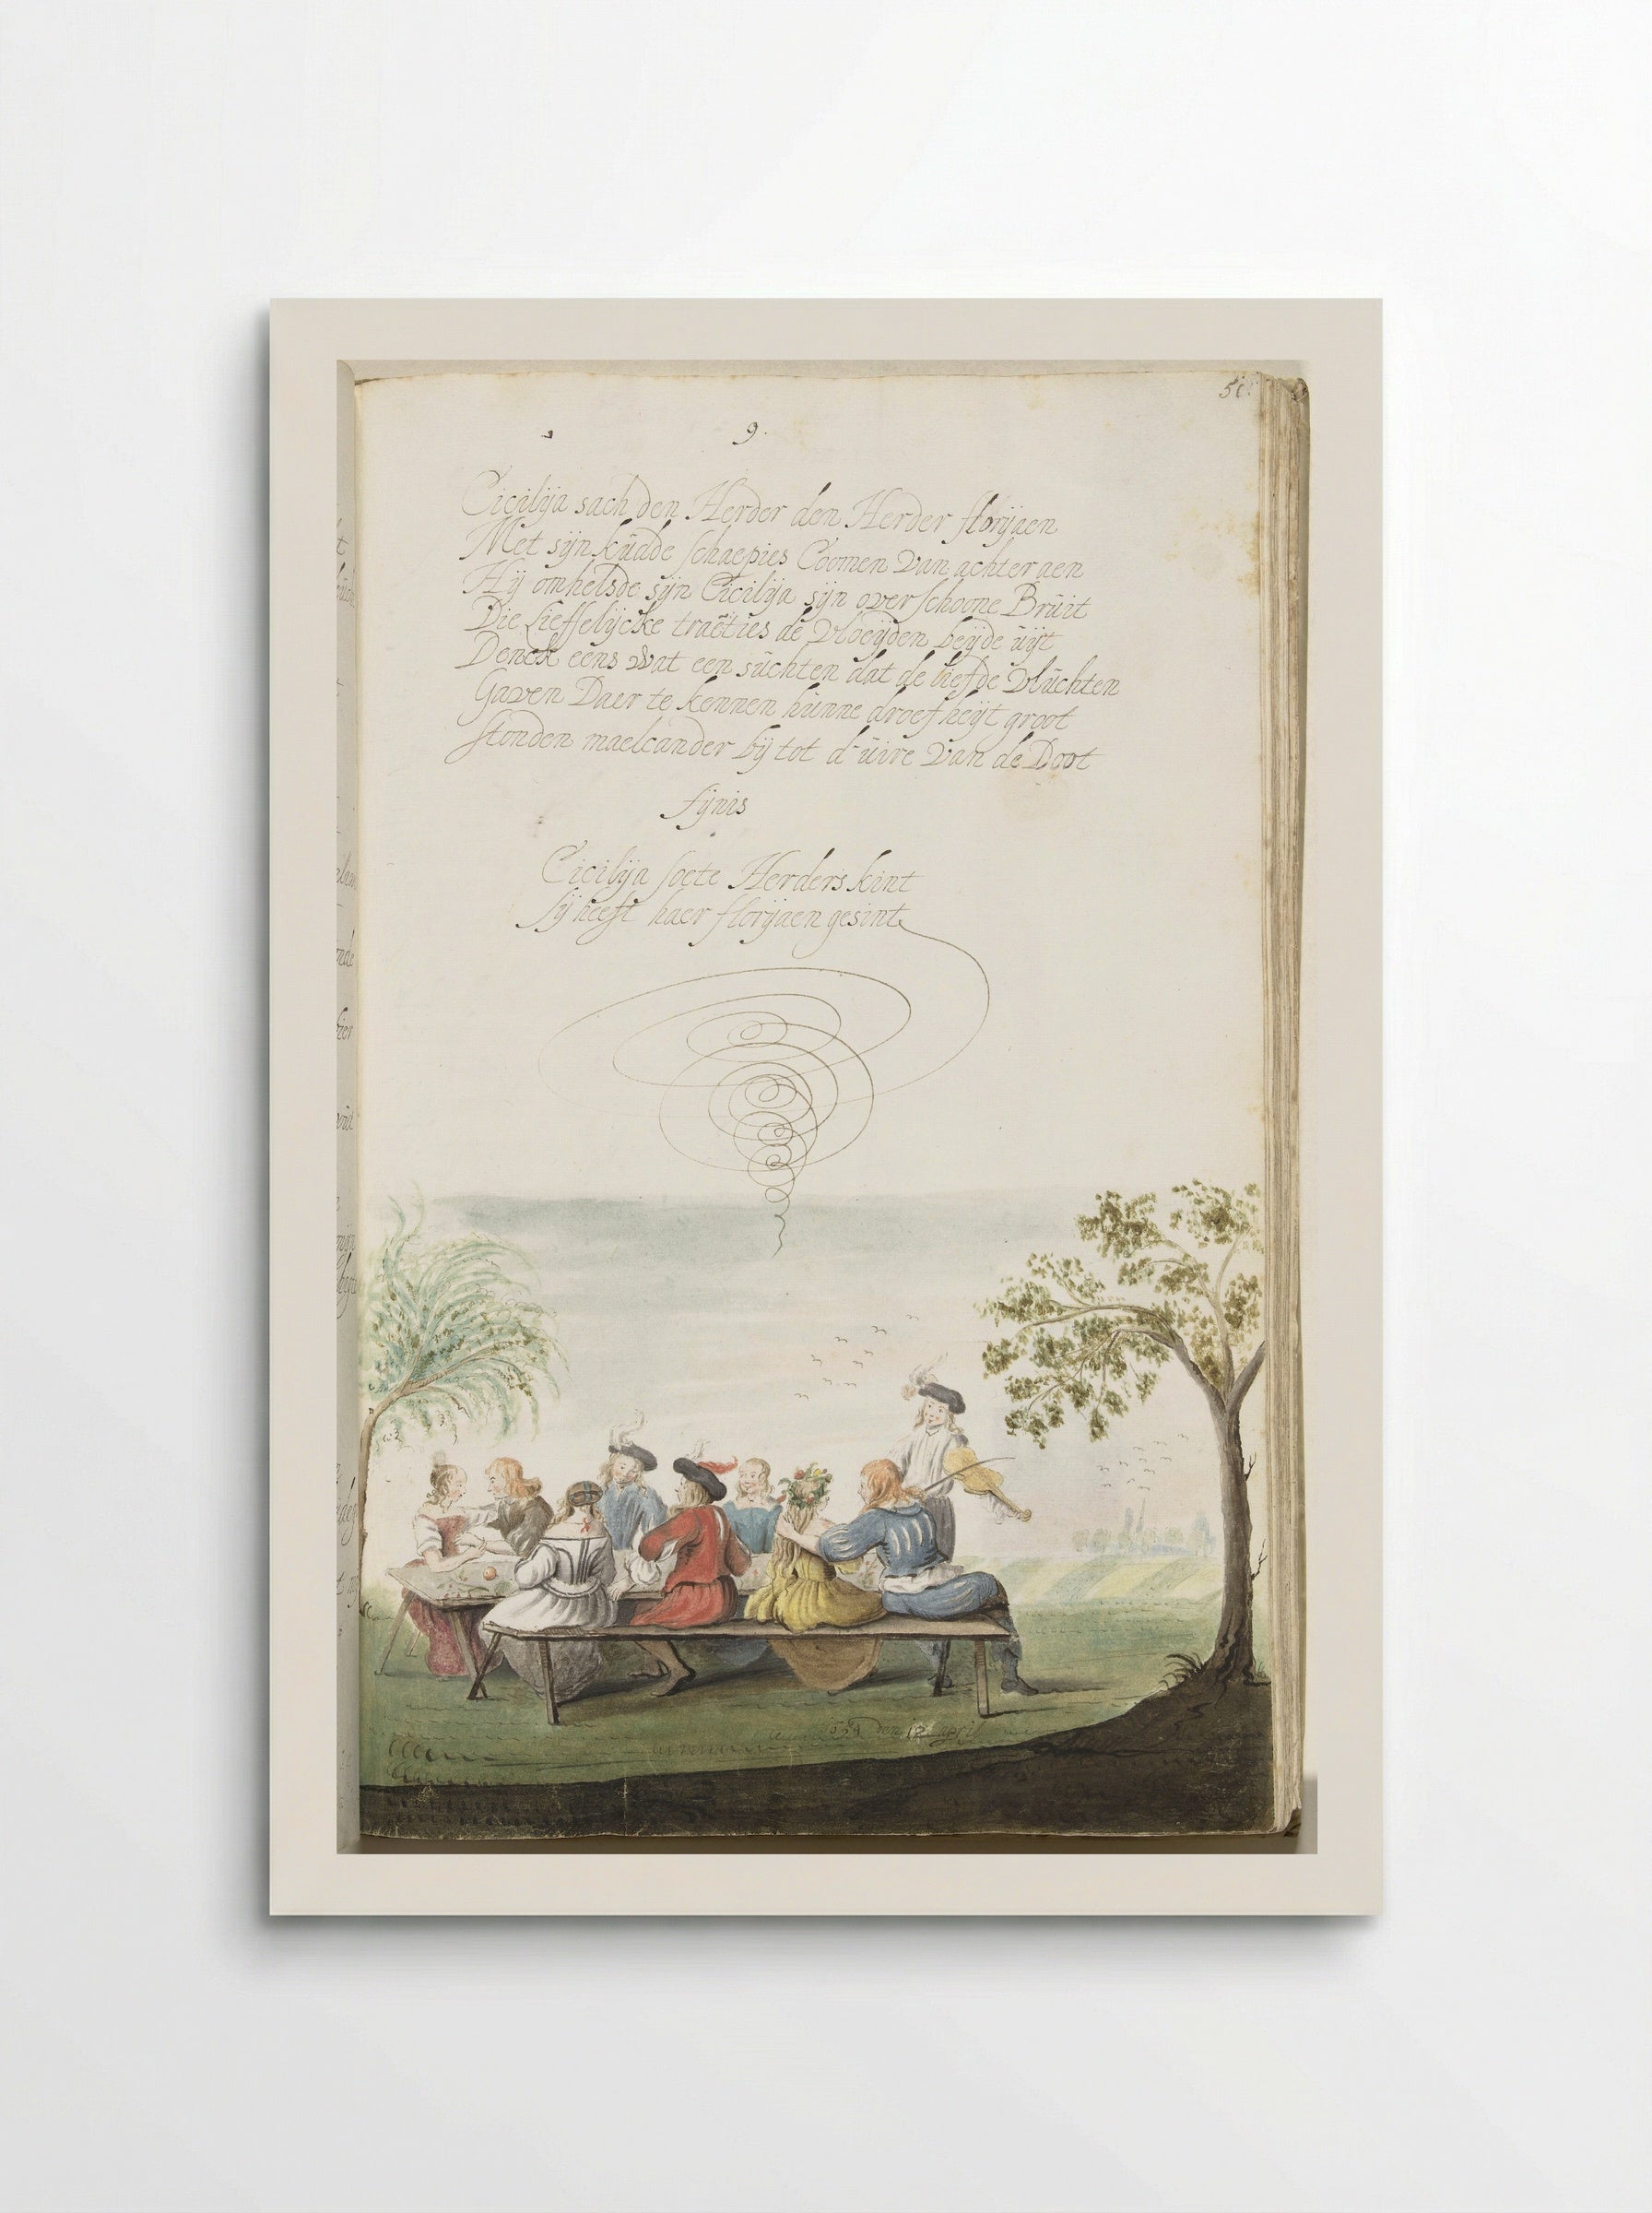 51
9.
Cicilija sach den Herder den Herder florijaen
Met sijn kudde schaepies Coomen van achter aen
Hij omhelsde sijn Cicilija sijn overschoone Brüit
Die Lieffelijcke traeties de vloeijden beijde üijt
Denck eens wat een süchten dat de liefde vlüchten
Gaven Daer te kennen hünne droefheijt groot
stonden maelcander bij tot d'üire van de Doot
fijnis
Cicilija soete Herders kint
sij heeft haer florijaen gesint
den 12 april